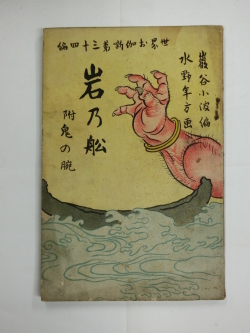 世界お伽噺第三十四編
巖谷小波編
水野年方画
岩乃舩
附鬼の腕